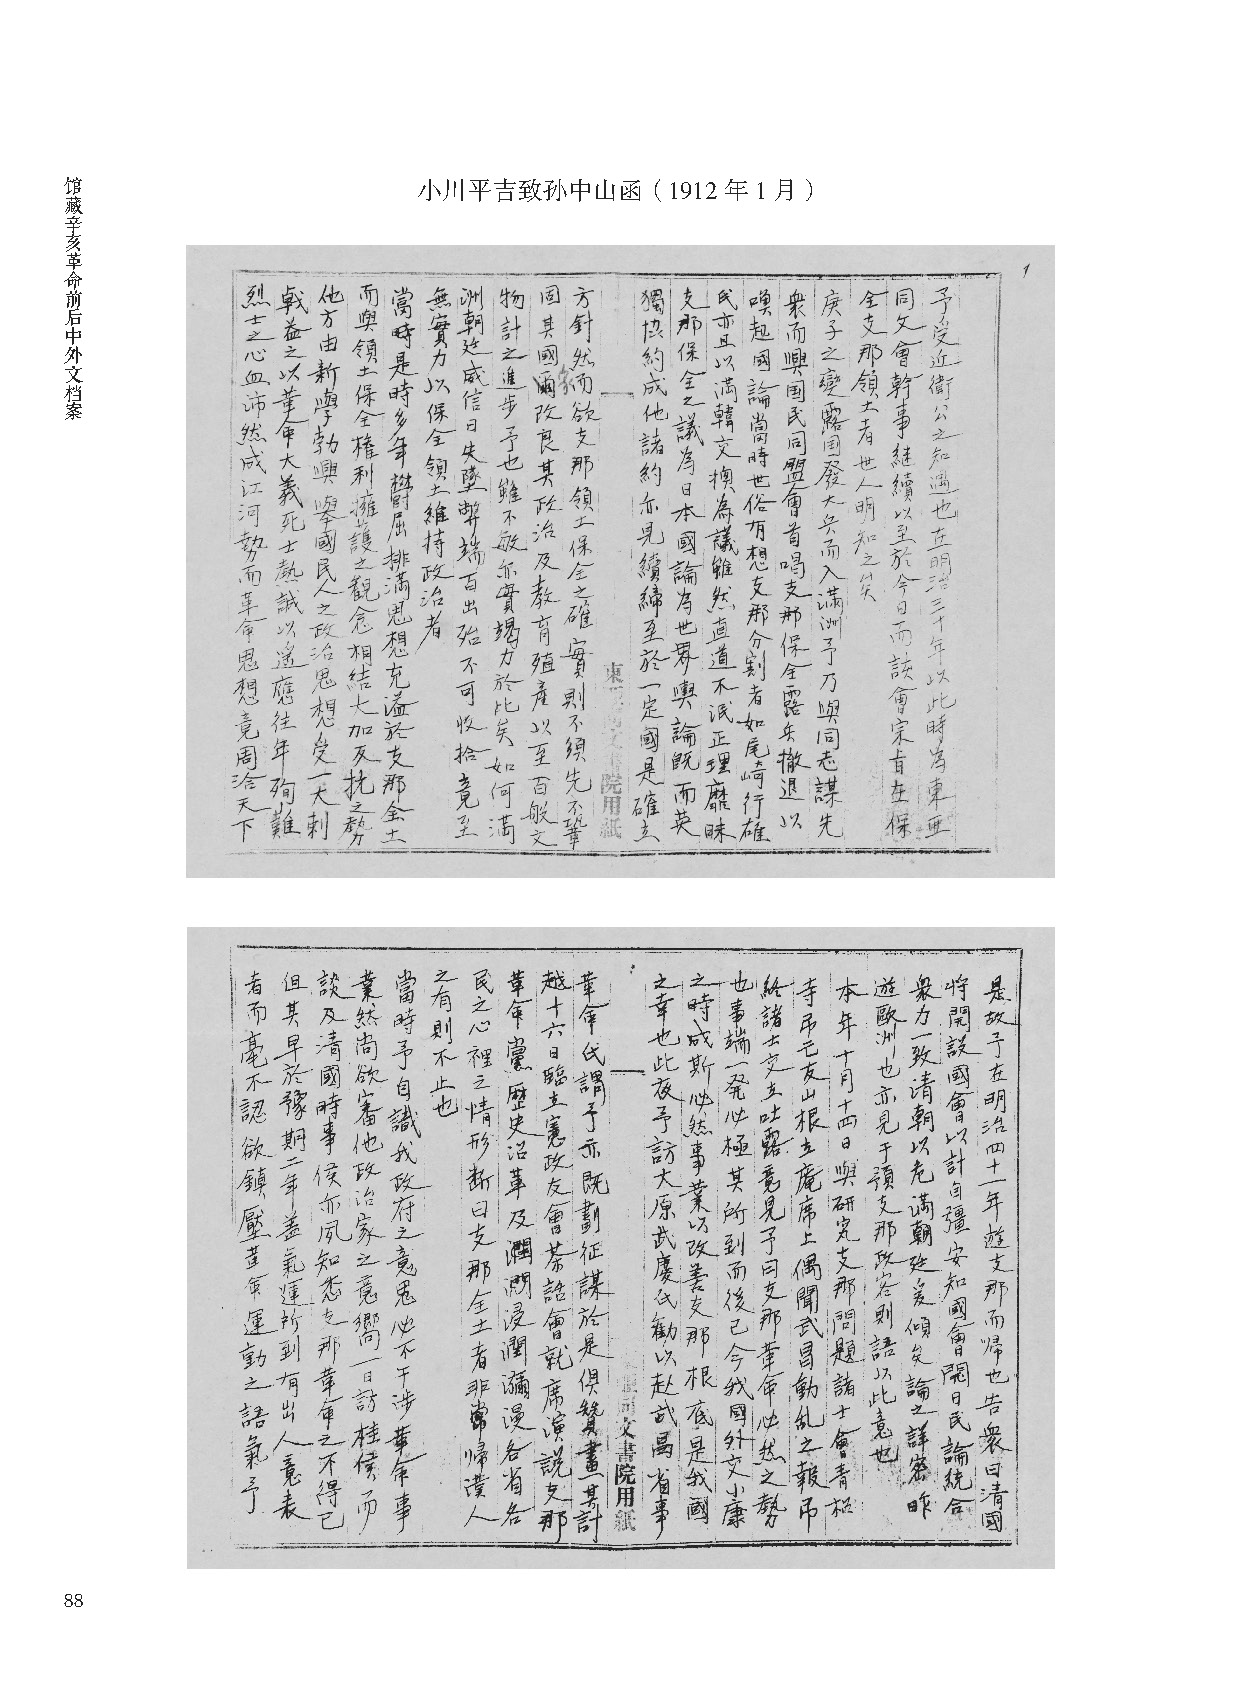 馆藏辛亥革命前后中外文档案
小川平吉致孙中山函（1912年1月）
1
予受近衛公之知遇也在明治三十年以此時為東亜
同文會幹事継續以至於今日而該會宗旨在保
全支那領土者世人明知之矣
庚子之變露国發大兵而入満洲予乃與同志謀先
衆而興国民同盟會首唱支那保全露兵撤退以
喚起國論當時世俗有想支那分割者如尾崎行雄
民亦且以満韓交換為議雖然直道不泯正理靡昧
支那保全之議為日本國論為世界輿論既而英
獨協約成他諸約亦見續締至於一定國是確立
方針然而欲支那領土保全之確實則不須先不鞏
固其國爾改良其政治及教育殖產以至百般文
物計之進步予也雖不敏亦實竭力於此矣如何満
洲朝廷威信日失墜弊端百出殆不可收拾竟至
無實力以保全領土維持政治者
當時是時多年欝屈排満思想充溢於支那全土
而與領土保全権利擁護之観念相結大加反抗之勢
他方由新學勃興舉國民人之政治思想受一大刺
戟益之以革命大義死士熱誠以遙應往年殉難
烈士之心血沛然成江河勢而革命思想竟周洽天下
東亜同文書院用紙
是故予在明治四十一年遊支那而帰也告衆曰清國
将開設國會以計自彊安知國會開日民論統合
衆力一致清朝以危満朝廷爰傾矣論之詳密昨
遊歐洲也亦見于預支那政客則語以此意也
本年十月十四日與研究支那問題諸士會青松
寺吊亡友山根立庵席上偶聞武昌動乱之報吊
終諸士交立吐露意見予曰支那革命必然之勢
也事端一発必極其所到而後已今我國外交小康
之時成斯必然事業以改善支那根底是我國
之幸也此夜予訪大原武慶氏勧以赴武昌省事
革命氏謂予亦既劃征謀於是俱賛畫其計
越十六日臨立憲政友會茶話會就席演説支那
革命黨歴史沿革及澗澗浸潤瀰漫各省各
民之心裡之情形断曰支那全土者非常帰漢人
之有則不止也
當時予自識我政府之意思必不干涉革命事
業然尚欲審他政治家之意嚮一日訪桂侯而
談及清國時事侯亦夙知悉支那革命之不得已
但其早於豫期二年蓋氣運所到有出人意表
者而毫不認欲鎮壓革命運動之語氣予
同文書院用紙
88